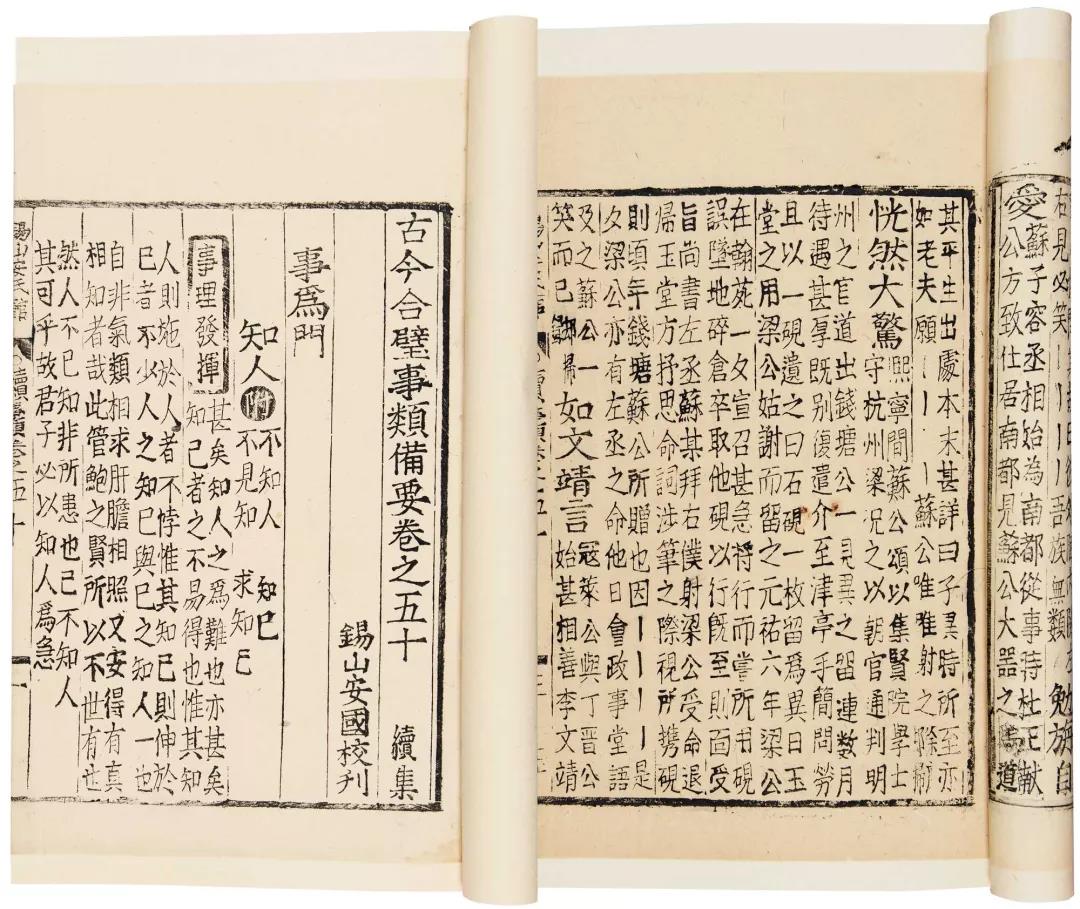 右見必笑｜｜｜｜吾族無類 勉旃自
愛 蘇子容丞相始為南都從事時杜正獻
公方致仕居南都見蘇公大器之為道
其平生出處本末甚詳曰子異時所至亦
如老夫願｜｜｜蘇公唯唯射之際
恍然大驚 熙寧間蘇公頌以集賢院學士
守杭州梁況之以朝官通判明
州之官道出錢塘公一見異之留連數月
待遇甚厚既別復遣介至津亭手簡問勞
且以一硯遺之曰石硯一枚留爲異日玉
堂之用梁公姑謝而留之元祐六年梁公
在翰苑一夕宣召甚急將行而嘗所書硯
誤墜地碎倉卒取他硯以行旣至則面受
旨尚書左丞蘇某拜右僕射梁公受命退
歸玉堂方抒思命詞涉筆之際視所携硯
則頃年錢塘蘇公所贈也因｜｜｜｜是
夕梁公亦有左丞之命他日會政事堂語
及之蘇公一
笑而已
如文靖言 寇萊公與丁晉公
始甚相善李文靖
古今合璧事類備要卷之五十 續集
錫山安國校刋
事爲門
知人 附 不知人 知己
不見知 求知己
事理發揮 甚矣知人之爲難也亦甚矣
知己者之不易得也惟其知
人則施於人者不悖惟其知己則伸於
己者不少人之知己與己之知人一也
自非氣類相求肝膽相照又安得有真
相知者哉此管鮑之賢所以不世有也
然人不己知非所患也己不知人
其可乎故君子必以知人爲急
錫山安氏館
續集卷之五十